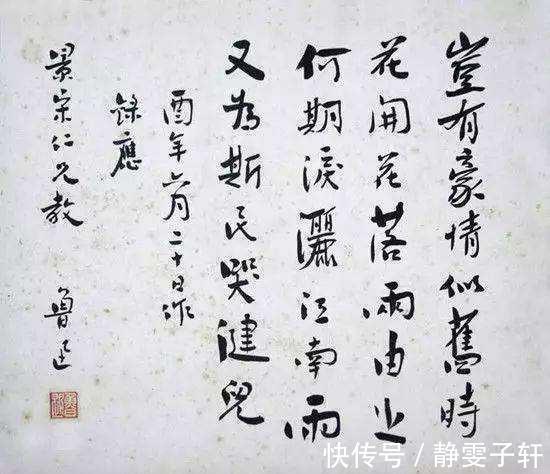 豈有豪情似舊時
花開花落兩由之
何期淚灑江南雨
又為斯民哭健兒
酉年六月二十日作
錄應
景宋仁兄教
魯迅
快传号/静雯子轩